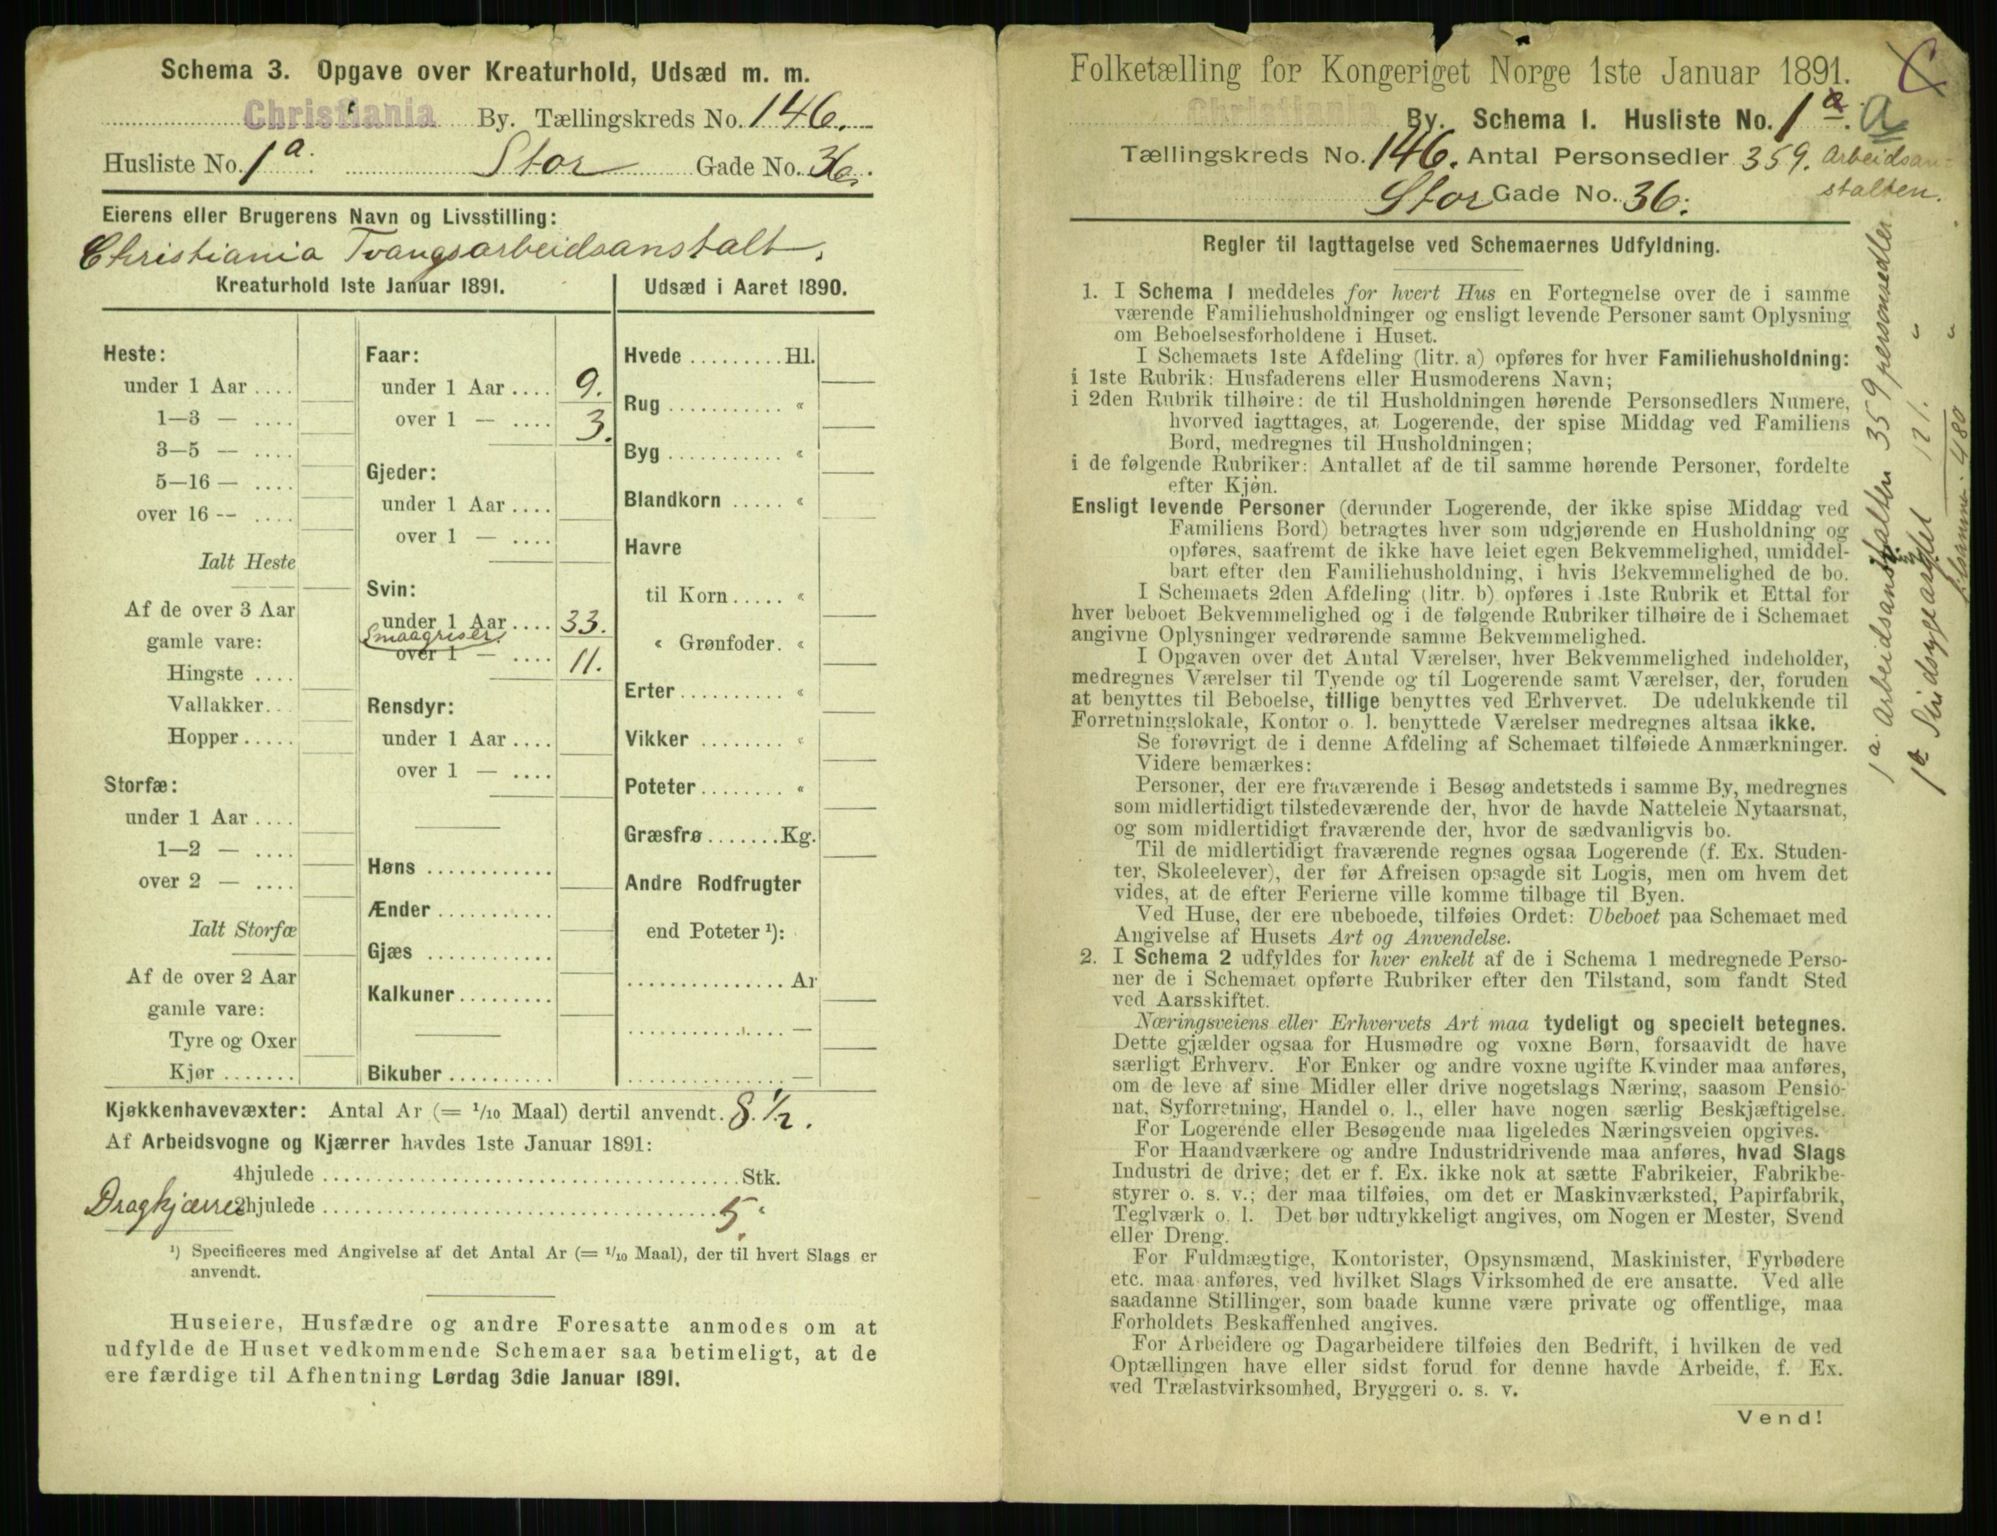 Schema 3. Opgave over Kreaturhold, Udsæd m. m.
Christiania By. Tællingskreds No. 146.
Husliste No. 1a. Stor Gade No. 36.
Eierens eller Brugerens Navn og Livsstilling:
Christiania Tvangsarbeidsanstalt.
Kreaturhold 1ste Januar 1891.
Heste:
under 1 Aar ....
1—3 — ....
3—5 — ....
5—16 — ....
over 16 -- ....
Ialt Heste
Af de over 3 Aar
gamle vare:
Hingste ....
Vallakker..
Hopper.....
Storfæ:
under 1 Aar ....
1—2 — ....
over 2 — ....
Ialt Storfæ
Af de over 2 Aar
gamle vare:
Tyre og Oxer
Kjør .......
Faar:
under 1 Aar .... 9.
over 1 — .... 3.
Gjeder:
under 1 Aar ....
over 1 — ....
Svin:
under 1 Aar .... 33.
Smaagriser
over 1 — .... 11.
Rensdyr:
under 1 Aar ....
over 1 — ....
Høns ............
Ænder ...........
Gjæs ............
Kalkuner.........
Bikuber..........
Udsæd i Aaret 1890.
Hvede .........Hl.
Rug ........... «
Byg ........... «
Blandkorn ..... «
Havre
til Korn..... «
« Grønfoder. «
Erter.......... «
Vikker ........ «
Poteter........ «
Græsfrø .......Kg.
Andre Rodfrugter
end Poteter ¹):
............... Ar
............... —
............... —
Kjøkkenhavevæxter: Antal Ar (= 1/10 Maal) dertil anvendt. 8 1/2.
Af Arbeidsvogne og Kjærrer havdes 1ste Januar 1891:
4hjulede ........................................Stk.
Dragkjærrer 2hjulede ..................................... 5. «
¹) Specificeres med Angivelse af det Antal Ar (= 1/10 Maal), der til hvert Slags er
anvendt.
Huseiere, Husfædre og andre Foresatte anmodes om at
udfylde de Huset vedkommende Schemaer saa betimeligt, at de
ere færdige til Afhentning Lørdag 3die Januar 1891.
Folketælling for Kongeriget Norge 1ste Januar 1891.
C
Christiania By. Schema I. Husliste No. 1a. a
Tællingskreds No. 146. Antal Personsedler 359. Arbeidsan-
stalten.
Stor Gade No. 36.
Regler til Iagttagelse ved Schemaernes Udfyldning.
1. I Schema I meddeles for hvert Hus en Fortegnelse over de i samme
værende Familiehusholdninger og ensligt levende Personer samt Oplysning
om Beboelsesforholdene i Huset.
I Schemaets 1ste Afdeling (litr. a) opføres for hver Familiehusholdning:
i 1ste Rubrik: Husfaderens eller Husmoderens Navn;
i 2den Rubrik tilhøire: de til Husholdningen hørende Personsedlers Numere,
hvorved iagttages, at Logerende, der spise Middag ved Familiens
Bord, medregnes til Husholdningen;
i de følgende Rubriker: Antallet af de til samme hørende Personer, fordelte
efter Kjøn.
Ensligt levende Personer (derunder Logerende, der ikke spise Middag ved
Familiens Bord) betragtes hver som udgjørende en Husholdning og
opføres, saafremt de ikke have leiet egen Bekvemmelighed, umiddel-
bart efter den Familiehusholdning, i hvis Bekvemmelighed de bo.
I Schemaets 2den Afdeling (litr. b) opføres i 1ste Rubrik et Ettal for
hver beboet Bekvemmelighed og i de følgende Rubriker tilhøire de i Schemaet
angivne Oplysninger vedrørende samme Bekvemmelighed.
I Opgaven over det Antal Værelser, hver Bekvemmelighed indeholder,
medregnes Værelser til Tyende og til Logerende samt Værelser, der, foruden
at benyttes til Beboelse, tillige benyttes ved Erhvervet. De udelukkende til
Forretningslokale, Kontor o. l. benyttede Værelser medregnes altsaa ikke.
Se forøvrigt de i denne Afdeling af Schemaet tilføiede Anmærkninger.
Videre bemærkes:
Personer, der ere fraværende i Besøg andetsteds i samme By, medregnes
som midlertidigt tilstedeværende der, hvor de havde Natteleie Nytaarsnat,
og som midlertidigt fraværende der, hvor de sædvanligvis bo.
Til de midlertidigt fraværende regnes ogsaa Logerende (f. Ex. Studen-
ter, Skoleelever), der før Afreisen opsagde sit Logis, men om hvem det
vides, at de efter Ferierne ville komme tilbage til Byen.
Ved Huse, der ere ubeboede, tilføies Ordet: Ubeboet paa Schemaet med
Angivelse af Husets Art og Anvendelse.
2. I Schema 2 udfyldes for hver enkelt af de i Schema 1 medregnede Perso-
ner de i Schemaet opførte Rubriker efter den Tilstand, som fandt Sted
ved Aarsskiftet.
Næringsveiens eller Erhvervets Art maa tydeligt og specielt betegnes.
Dette gjælder ogsaa for Husmødre og voxne Børn, forsaavidt de have
særligt Erhverv. For Enker og andre voxne ugifte Kvinder maa anføres,
om de leve af sine Midler eller drive nogetslags Næring, saasom Pensio-
nat, Syforretning, Handel o. l., eller have nogen særlig Beskjæftigelse.
For Logerende eller Besøgende maa ligeledes Næringsveien opgives.
For Haandværkere og andre Industridrivende maa anføres, hvad Slags
Industri de drive; det er f. Ex. ikke nok at sætte Fabrikeier, Fabrikbe-
styrer o. s. v.; der maa tilføies, om det er Maskinværksted, Papirfabrik,
Teglværk o. l. Det bør udtrykkeligt angives, om Nogen er Mester, Svend
eller Dreng.
For Fuldmægtige, Kontorister, Opsynsmænd, Maskinister, Fyrbødere
etc. maa anføres, ved hvilket Slags Virksomhed de ere ansatte. Ved alle
saadanne Stillinger, som baade kunne være private og offentlige, maa
Forholdets Beskaffenhed angives.
For Arbeidere og Dagarbeidere tilføies den Bedrift, i hvilken de ved
Optællingen have eller sidst forud for denne havde Arbeide, f. Ex.
ved Trælastvirksomhed, Bryggeri o. s. v.
Vend!
1a. Arbeidsanstalten 359 personsedler.
1b Sindsygeasylet 121. " "
tilsamme. 480